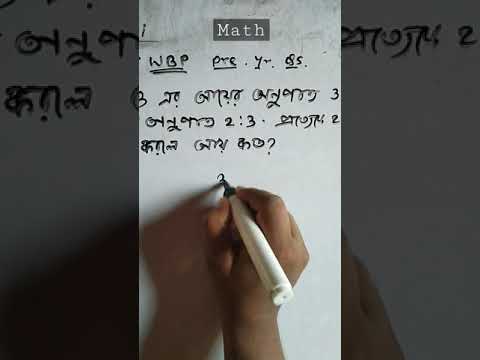 Math
WBP Pre. Yr. Qs.
এর আয়ের অনুপাত 3
অনুপাত 2:3. প্রত্যেকে 2
করলে আয় কত?
3